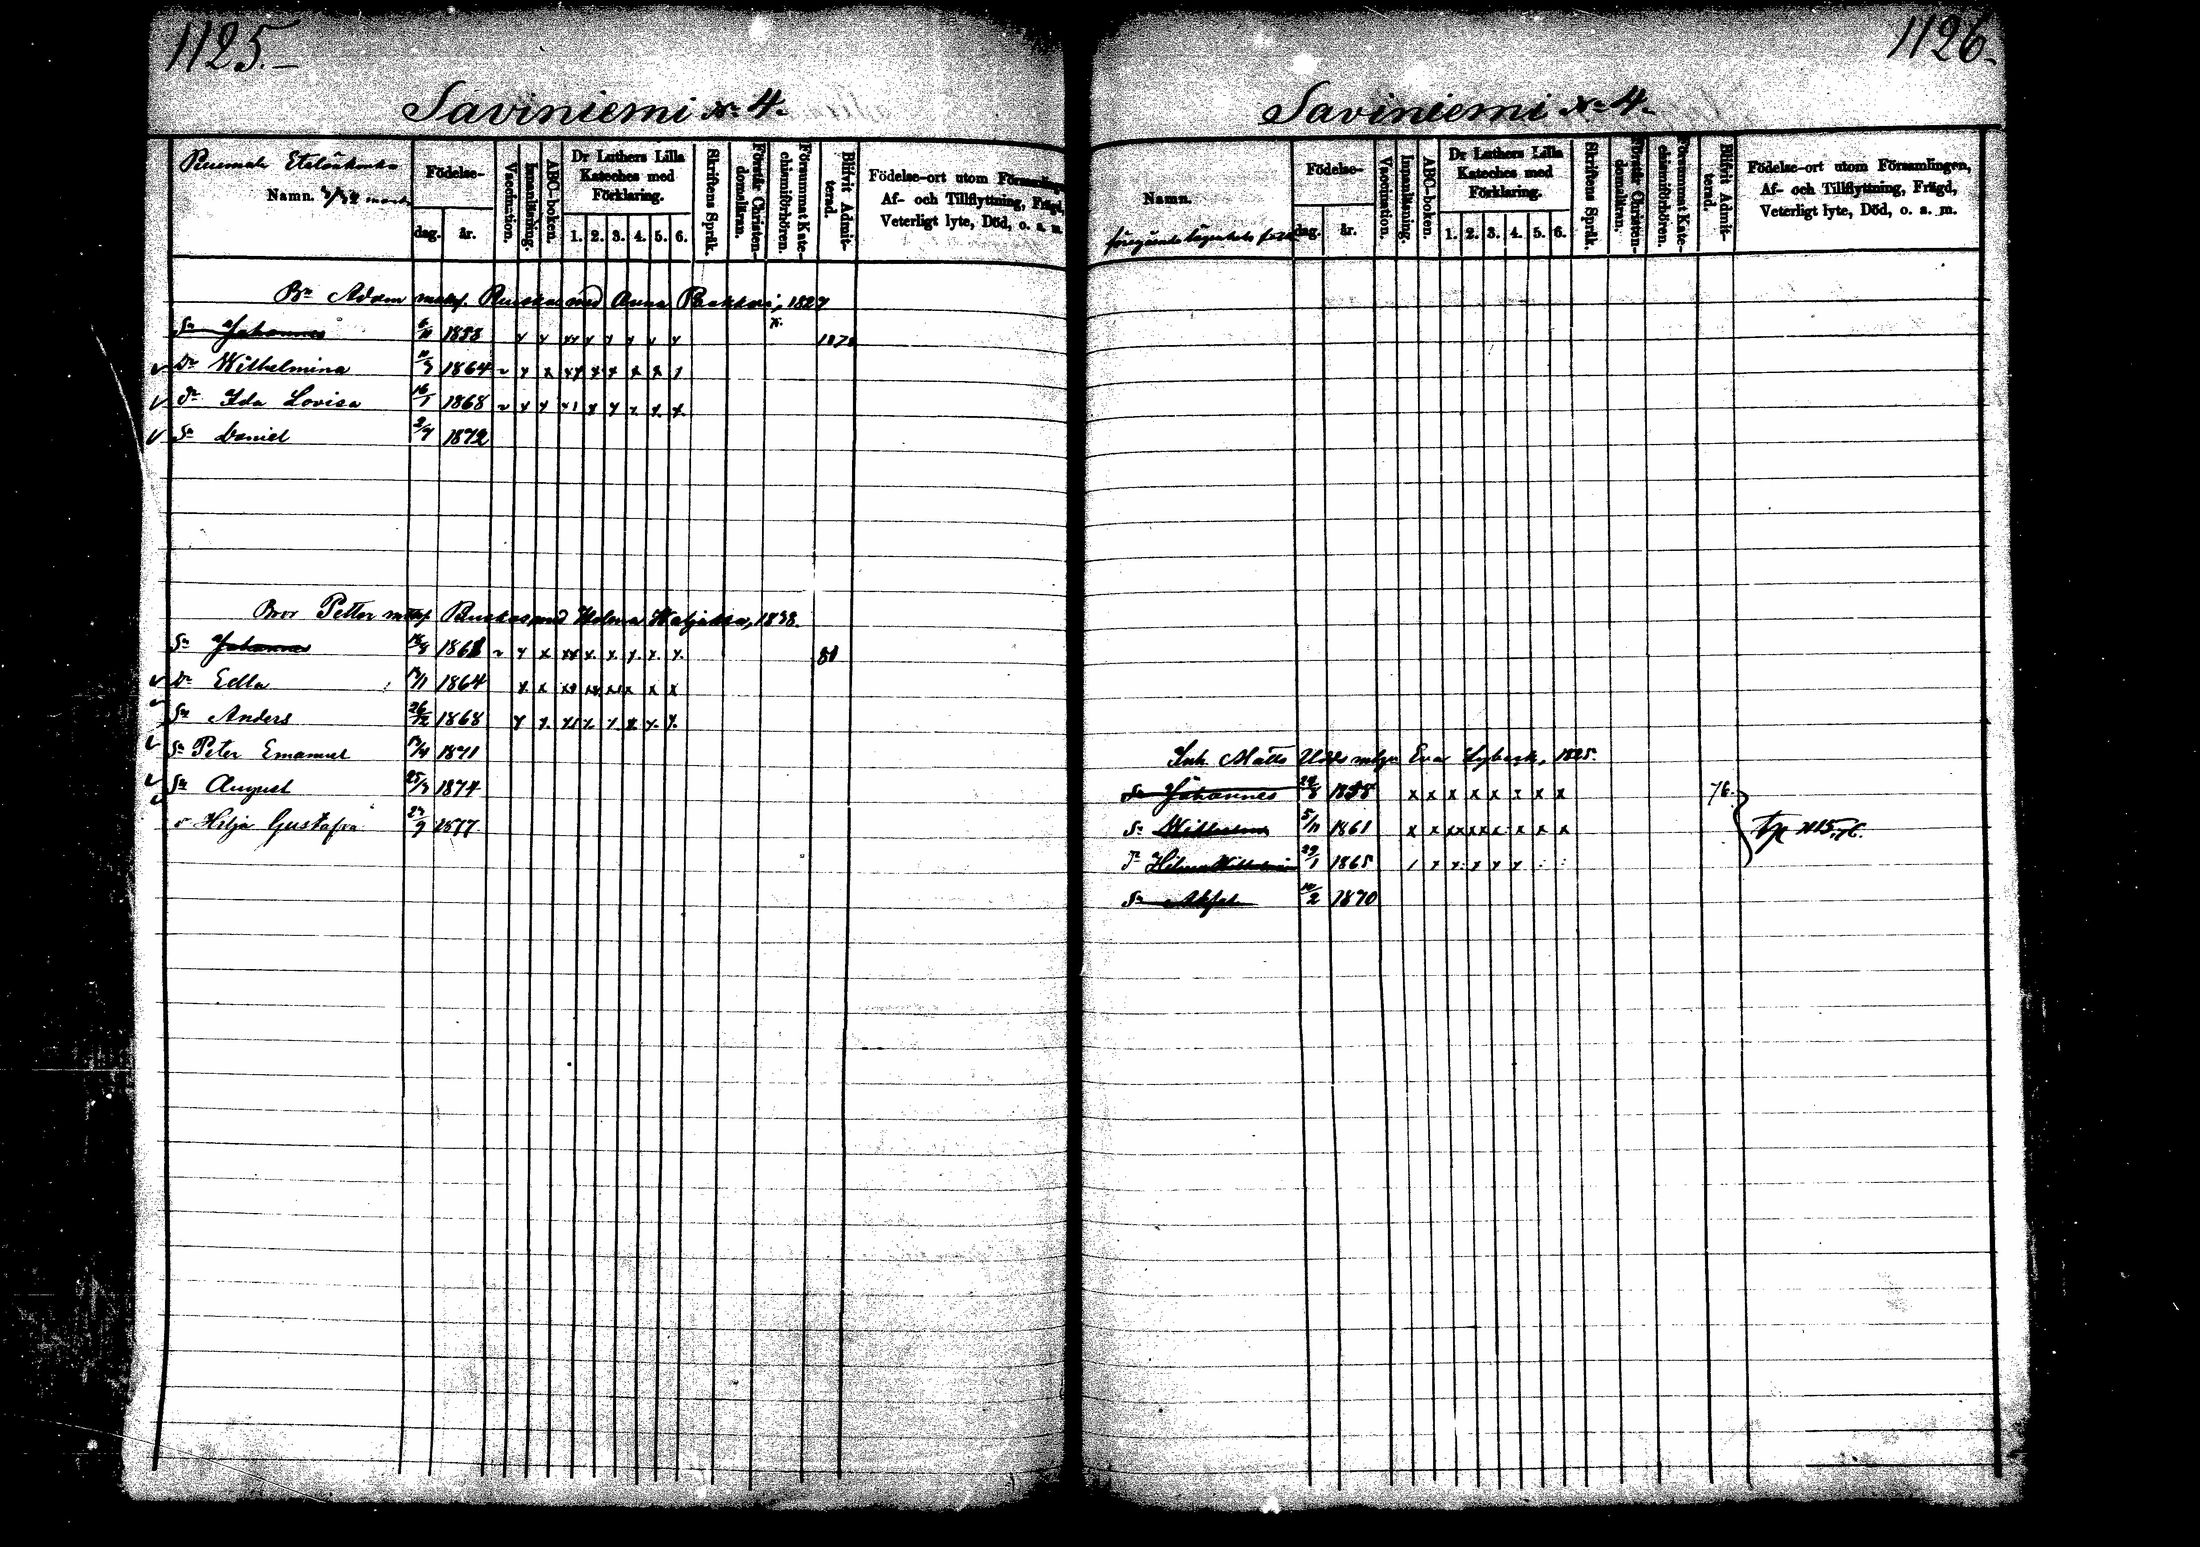 1125.
Saviniemi No 4.
Namn.
Födelse-
dag.
år.
Vaccination.
Innanläsning.
ABC-boken.
Dr Luthers Lilla
Kateches med
Förklaring.
1. 2. 3. 4. 5. 6.
Skriftens Språk.
Förstår Christen-
domsläran.
Försummat Kate-
chismiförhören.
Blifvit Admit-
terad.
Födelse-ort utom Församlingen,
Af- och Tillflyttning, Frägd,
Veterligt lyte, Död, o. a. m.
Br Adam med Anna 1827
Sn Johannes 6/11 1858 x x xx x x x x x
Dr Wilhelmina 1864 x x xx x x x x
Dr Ida Lovisa 16/1 1868 x x x x x x x
Sn Daniel 2/7 1872
Bror Petter med Helena 1838.
Sn Johannes x x xx x x x x x 80
Dr Edla 1864 x x
Sn Anders 26/2 1868 x x x x x x x
Sn Peter Emanuel 1871
Sn August 25/3 1874
Hilja Gustafva 1877
1126.
Saviniemi No 4.
Namn.
Födelse-
dag.
år.
Vaccination.
Innanläsning.
ABC-boken.
Dr Luthers Lilla
Kateches med
Förklaring.
1. 2. 3. 4. 5. 6.
Skriftens Språk.
Förstår Christen-
domsläran.
Försummat Kate-
chismiförhören.
Blifvit Admit-
terad.
Födelse-ort utom Församlingen,
Af- och Tillflyttning, Frägd,
Veterligt lyte, Död, o. a. m.
Inh. Matts Eva 1825.
Sn Johannes 1858 x x x x x x x x 76.
Sn Wilhelm 5/11 1861 x x xx x x x x x
Dr Hilma Wilhelmina 29/1 1865
Sn 1870